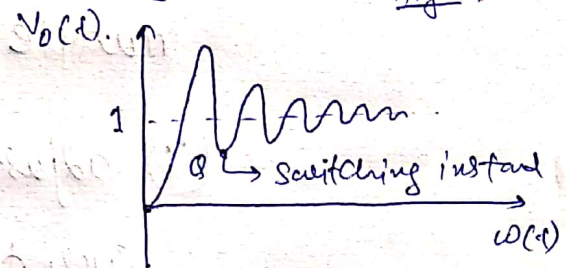 V₀(t).
1
Q → Switching instant
ω(t)